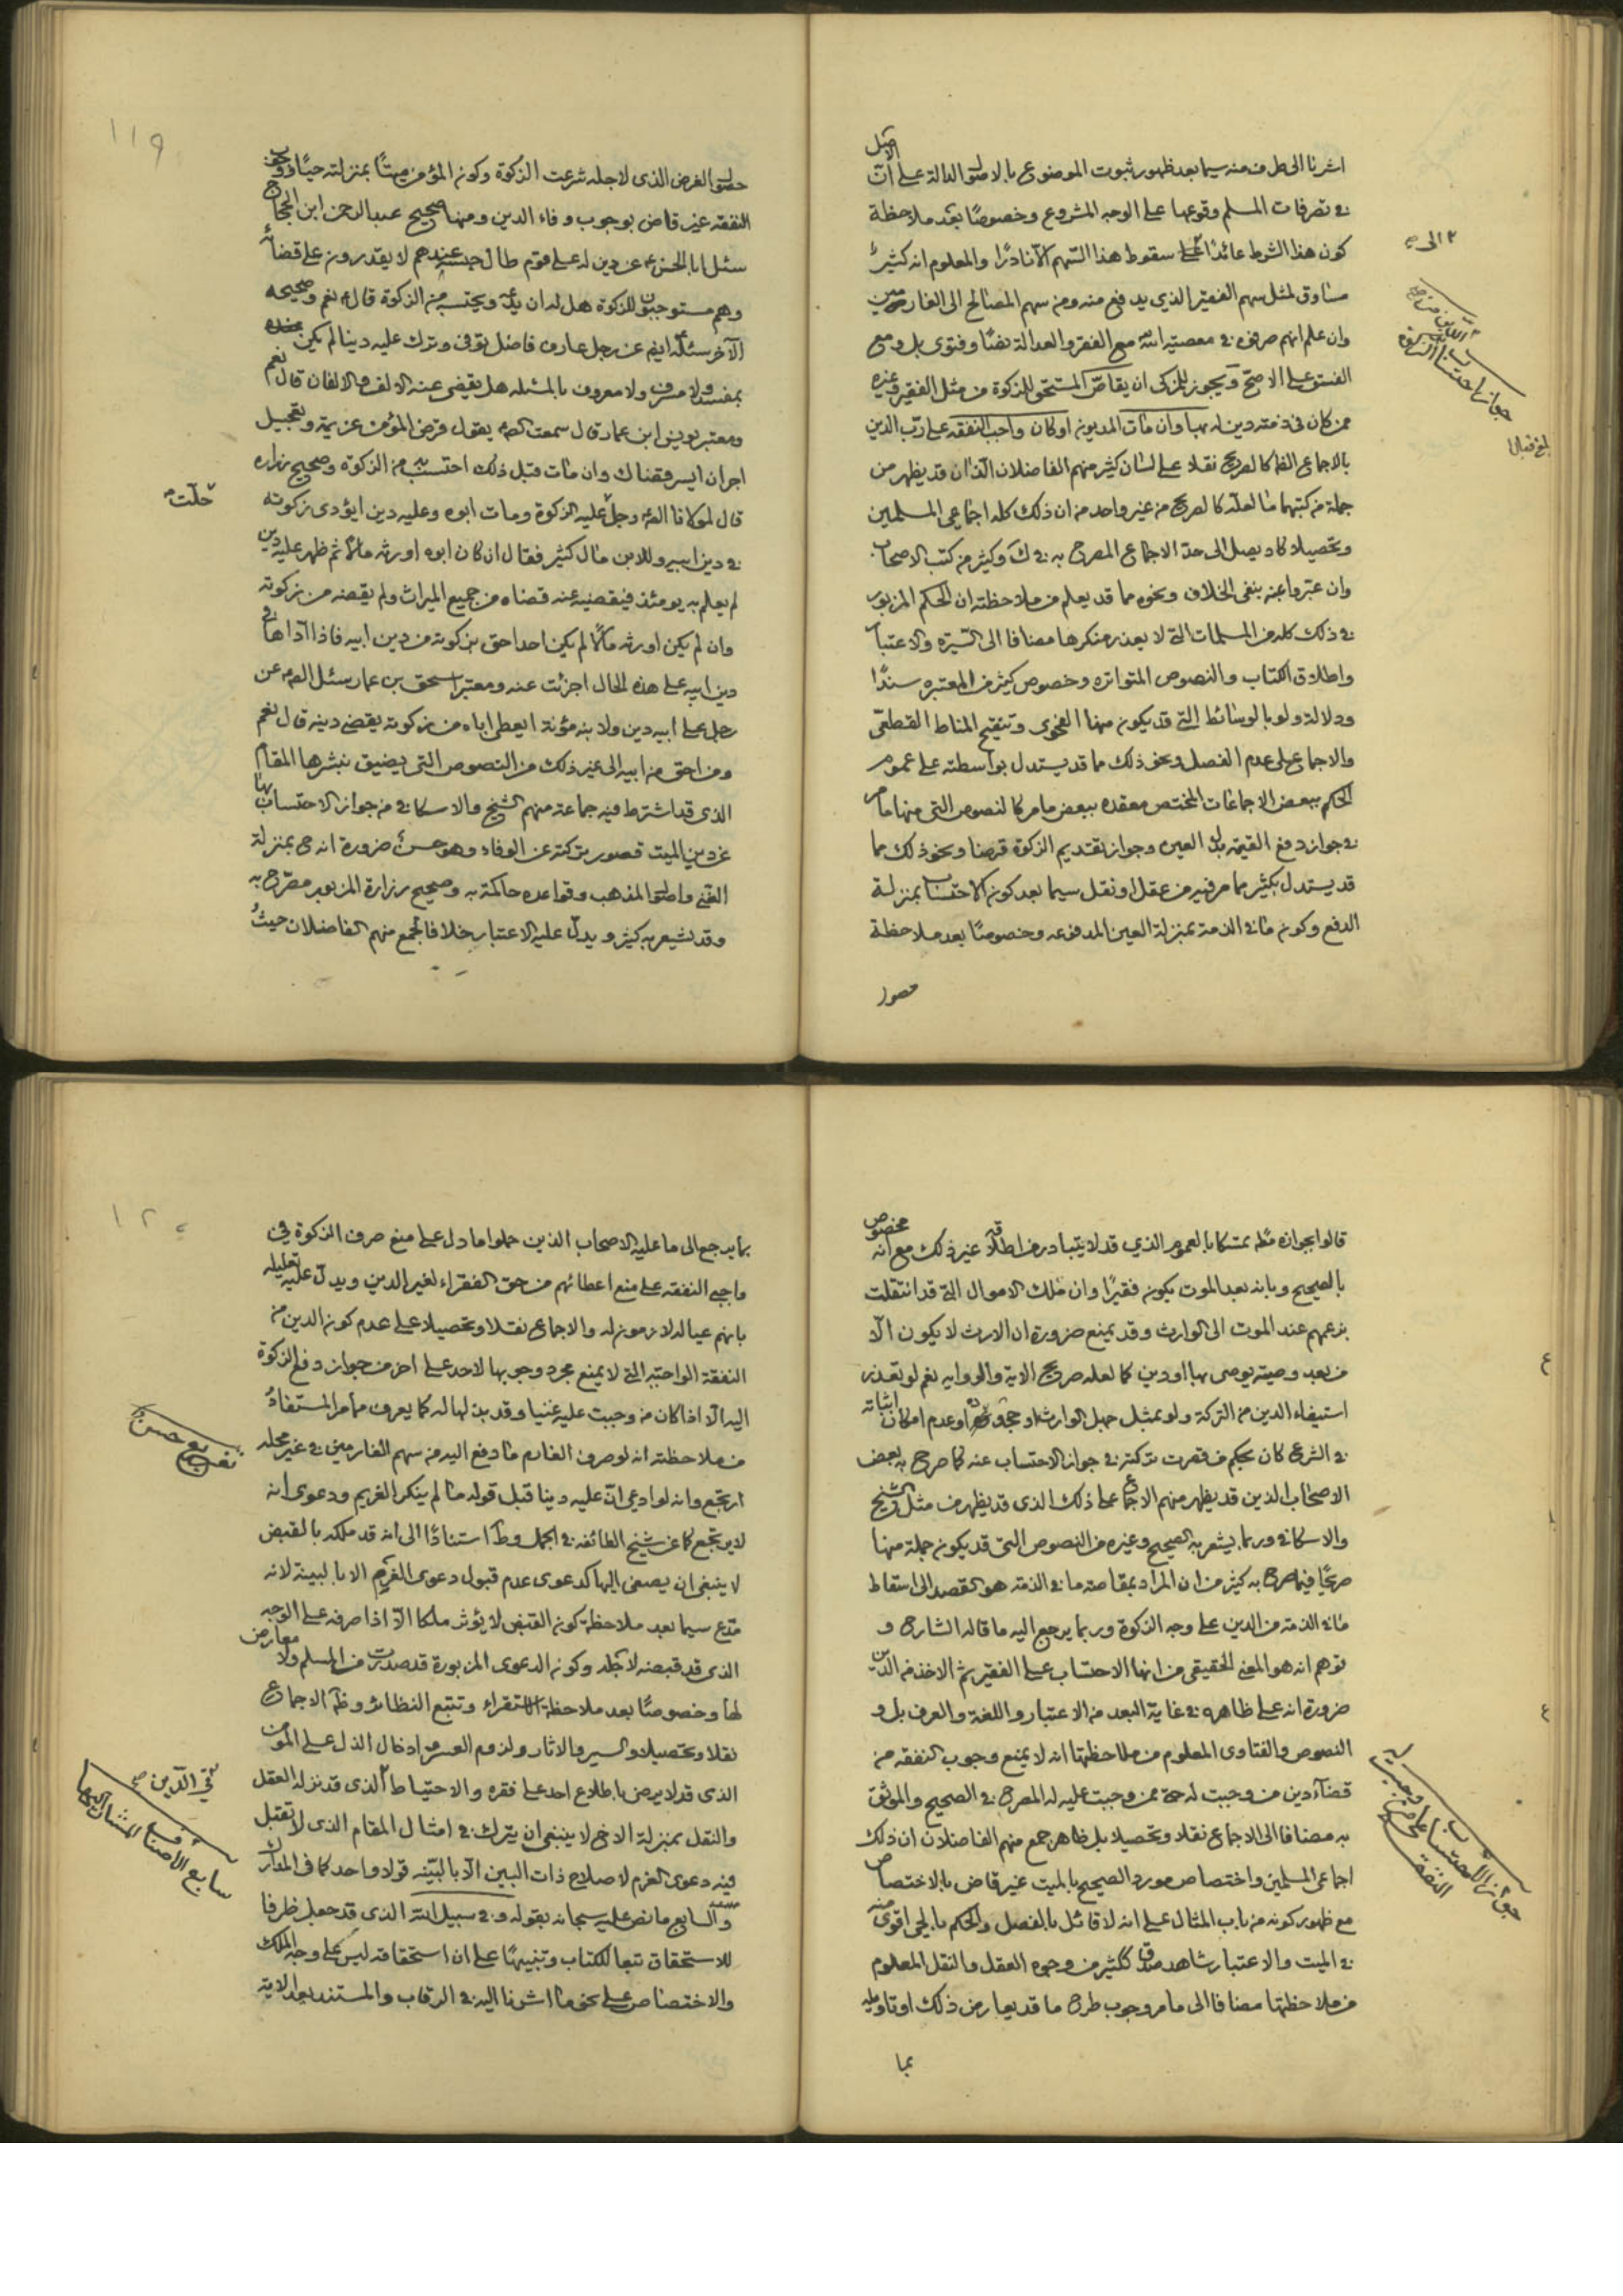 اشرنا الى طرف منه سيما بعد ظهور ثبوت الموضوع بالاصل الدالة على ان الاصل
في تصرفات المسلم وقوعها على الوجه المشروع وخصوصًا بعد ملاحظة
كون هذا الشرط عائدًا الى سقوط هذا السهم الا نادرًا والمعلوم انه كثير
مساوق لمثل سهم الفقير الذي يدفع منه ومن سهم المصالح الى الغارمين
وان علم انهم صرفوه في معصية الله مع الفقر والعدالة نصًا وفتوى بل ومع
الفسق على الاصح ويجوز للمزكى ان يقاص المستحق للزكوة من مثل الفقير وغيره
ممن كان في ذمته دين له بها وان مات المديون او كان واجب النفقه على رب الدين
بالاجماع الظ كالصريح نقلا على لسان كثير منهم الفاضلان اللذان قد يظهر من
جملة من كتبهما ما لعله كالصريح من غير واحد من ان ذلك كله اجماعي المسلمين
وتحصيلا كاد يصل الى حد الاجماع المصرح به في ك وكثير من كتب الاصحاب
وان عبروا عنه بنفى الخلاف ونحوه مما قد يعلم من ملاحظته ان الحكم المزبور
في ذلك كله من المسلمات التي لا يعذر منكرها مضافا الى السيرة والاعتبار
واطلاق الكتاب والنصوص المتواتره وخصوص كثير من المعتبره سندًا
ودلالة ولو بالوسائط التي قد يكون منها الفحوى وتنقيح المناط القطعي
والاجماع على عدم الفصل ونحو ذلك مما قد يستدل بواسطته على عموم
الحكم ببعض الاجماعات المختص معقده ببعض ما مر كالنصوص التي منها ما مر
في جواز دفع القيمة بدل العين وجواز تقديم الزكوة قرضا ونحو ذلك مما
قد يستدل بكثير مما مر فيه من عقل او نقل سيما بعد كون الاحتساب بمنزلة
الدفع وكون ما في الذمة بمنزلة العين المدفوعه وخصوصًا بعد ملاحظة
حصول
١١٩
حصول الغرض الذى لاجله شرعت الزكوة وكون المؤمن ميتًا بمنزلته حيًا ووجوب
النفقه غير قاض بوجوب وفاء الدين ومنها صحيح عبد الرحمن ابن الحجاج
سئل ابا الحسن ع عن دين له على قوم طال حبسه عندهم لا يقدرون على قضائه
وهم مستوجبون للزكوة هل له ان يدعه ويحتسب به من الزكوة قال ع نعم وصحيحه
الآخر سئلته ايضا عن رجل عارف فاضل توفى وترك عليه دينا لم يكن
بمفسد ولا مسرف ولا معروف بالمسئله هل يقضى عنه الالف والالفان قال نعم
ومعتبر يونس ابن عمار قال سمعت الص ع يقول قرض المؤمن غنيمة وتعجيل
اجر ان ايسر قضاك وان مات قبل ذلك احتسبت به من الزكوة وصحيح زراره
قال لمولانا الص ع رجل عليه الزكوة ومات ابوه وعليه دين ايؤدى زكوته
حلت
في دين ابيه وللابن مال كثير فقال ان كان ابوه اورثه مالا ثم ظهر عليه دين
لم يعلم به يومئذ فيقضيه عنه قضاه من جميع الميراث ولم يقضه من زكوته
وان لم يكن اورثه مالا لم يكن احد احق بزكوته من دين ابيه فاذا اداها في
دين ابيه على هذه الحال اجزئت عنه ومعتبر اسحق بن عمار سئل الص ع عن
رجل على ابيه دين ولابنه مؤنة ايعطى اباه من زكوته يقضى دينه قال نعم
ومن احق من ابيه الى غير ذلك من النصوص التي يضيق بنشرها المقام
الذى قد اشترط فيه جماعة منهم الشيخ والاسكافي من جواز الاحتساب بها
عن دين الميت قصور تركته عن الوفاء وهو حسن ضرورة انه مع بمنزلة
الغنى واصول المذهب وقواعده حاكمة به وصحيح زرارة المزبور مصرح به
وقد يشعر به كثير ويدل عليه الاعتبار خلافا لجمع منهم الفاضلان حيث
قالوا بجوازه مط تمسكا بالعموم الذي قد لا يتبادر من اطلاقه غير ذلك مع انه مخصوص
بالصحيح وبانه بعد الموت يكون فقيرًا وان ملك الاموال التي قد انتقلت
بزعمهم عند الموت الى الوارث وقد يمنع ضرورة ان الارث لا يكون الا
من بعد وصيته يوصى بها او دين كما لعله صريح الاية والروايه نعم لو تعذر
استيفاء الدين من التركة ولو بمثل جهل الوارث او جحوده وعدم امكان اثباته
في الشرع كان بحكم من قصرت تركته في جواز الاحتساب عنه كما صرح به بعض
الاصحاب الذين قد يظهر منهم الاجماع على ذلك الذى قد يظهر من مثل الشيخ
والاسكافي وربما يشعر به الصحيح وغيره من النصوص التي قد يكون جملة منها
صريحًا فيما صرح به كثير من ان المراد بمقاصته ما في الذمة هو القصد الى اسقاط
ما في الذمة من الدين على وجه الزكوة وربما يرجع اليه ما قاله الشارح و
توهم انه هو المعنى الحقيقي من انها الاحتساب على الفقير ثم الاخذ من الدين
ضرورة انه على ظاهره في غاية البعد من الاعتبار واللغة والعرف بل و
النصوص والفتاوى المعلوم من ملاحظتها انه لا يمنع وجوب النفقه من
قضاء دين من وجبت له حتى ممن وجبت عليه له المصرح في الصحيح والموثق
به مضافا الى الاجماع نقلا وتحصيلا بل ظاهر جمع منهم الفاضلان ان ذلك
اجماعي المسلمين واختصاص مورد الصحيح بالميت غير قاض بالاختصاص
مع ظهور كونه من باب المثال على انه لا قائل بالفصل والحكم بالحي اقوى منه
في الميت والاعتبار شاهد صدق ككثير من وجوه العقل والنقل المعلوم
من ملاحظتها مضافا الى ما مر وجوب طرح ما قد يعارض ذلك او تاويله
بما
١٢٠
بما يرجع الى ما عليه الاصحاب الذين حملوا ما دل على منع صرف الزكوة في
واجبي النفقه على منع اعطائهم من حق الفقراء لغير الدين ويدل عليه تعليله
بانهم عياله لازمون له والاجماع نقلا وتحصيلا على عدم كون الدين من
النفقة الواجبة التي لا يمنع مجرد وجوبها لاحد على اخر من جواز دفع الزكوة
اليه الا اذا كان من وجبت عليه غنيا وقد بذلها له كما يعرف مما مر المستفاد
من ملاحظته انه لو صرف الغارم ما دفع اليه من سهم الغارمين في غير محله
ارتجع وانه لو ادعى ان عليه دينا قبل قوله ما لم ينكر الغريم ودعوى انه
لا يرتجع كما عن شيخ الطائفه في الجمل وط استنادًا الى انه قد ملكه بالقبض
لا ينبغى ان يصغى اليها كدعوى عدم قبول دعوى الغرم الا بالبينة لانه
مدع سيما بعد ملاحظة كون القبض لا يؤثر ملكا الا اذا صرفه على الوجه
الذى قد قبضه لاجله وكون الدعوى المزبورة قد صدرت من المسلم ولا معارض
لها وخصوصًا بعد ملاحظة الاستقراء وتتبع النظائر وظ الاجماع
نقلا وتحصيلا والسير والاثار ولزوم العسر وادخال الذل على المؤمن
الذى قد لا يرضى باطلاع احد على فقره والاحتياط الذى قد نزله العقل
والنقل بمنزلة الاخ لا ينبغى ان يترك في امثال المقام الذى لا تقبل
فيه دعوى الغرم لاصلاح ذات البين الا بالبينه قولا واحدا كما في المدارك
والسابع ما نص عليه سبحانه بقوله وفي سبيل الله الذى قد جعل ظرفا
للاستحقاق تبعا للكتاب وتنبيهًا على ان استحقاقه ليس على وجه الملك
والاختصاص على نحو ما اشرنا اليه في الرقاب والمستند بعد الاية